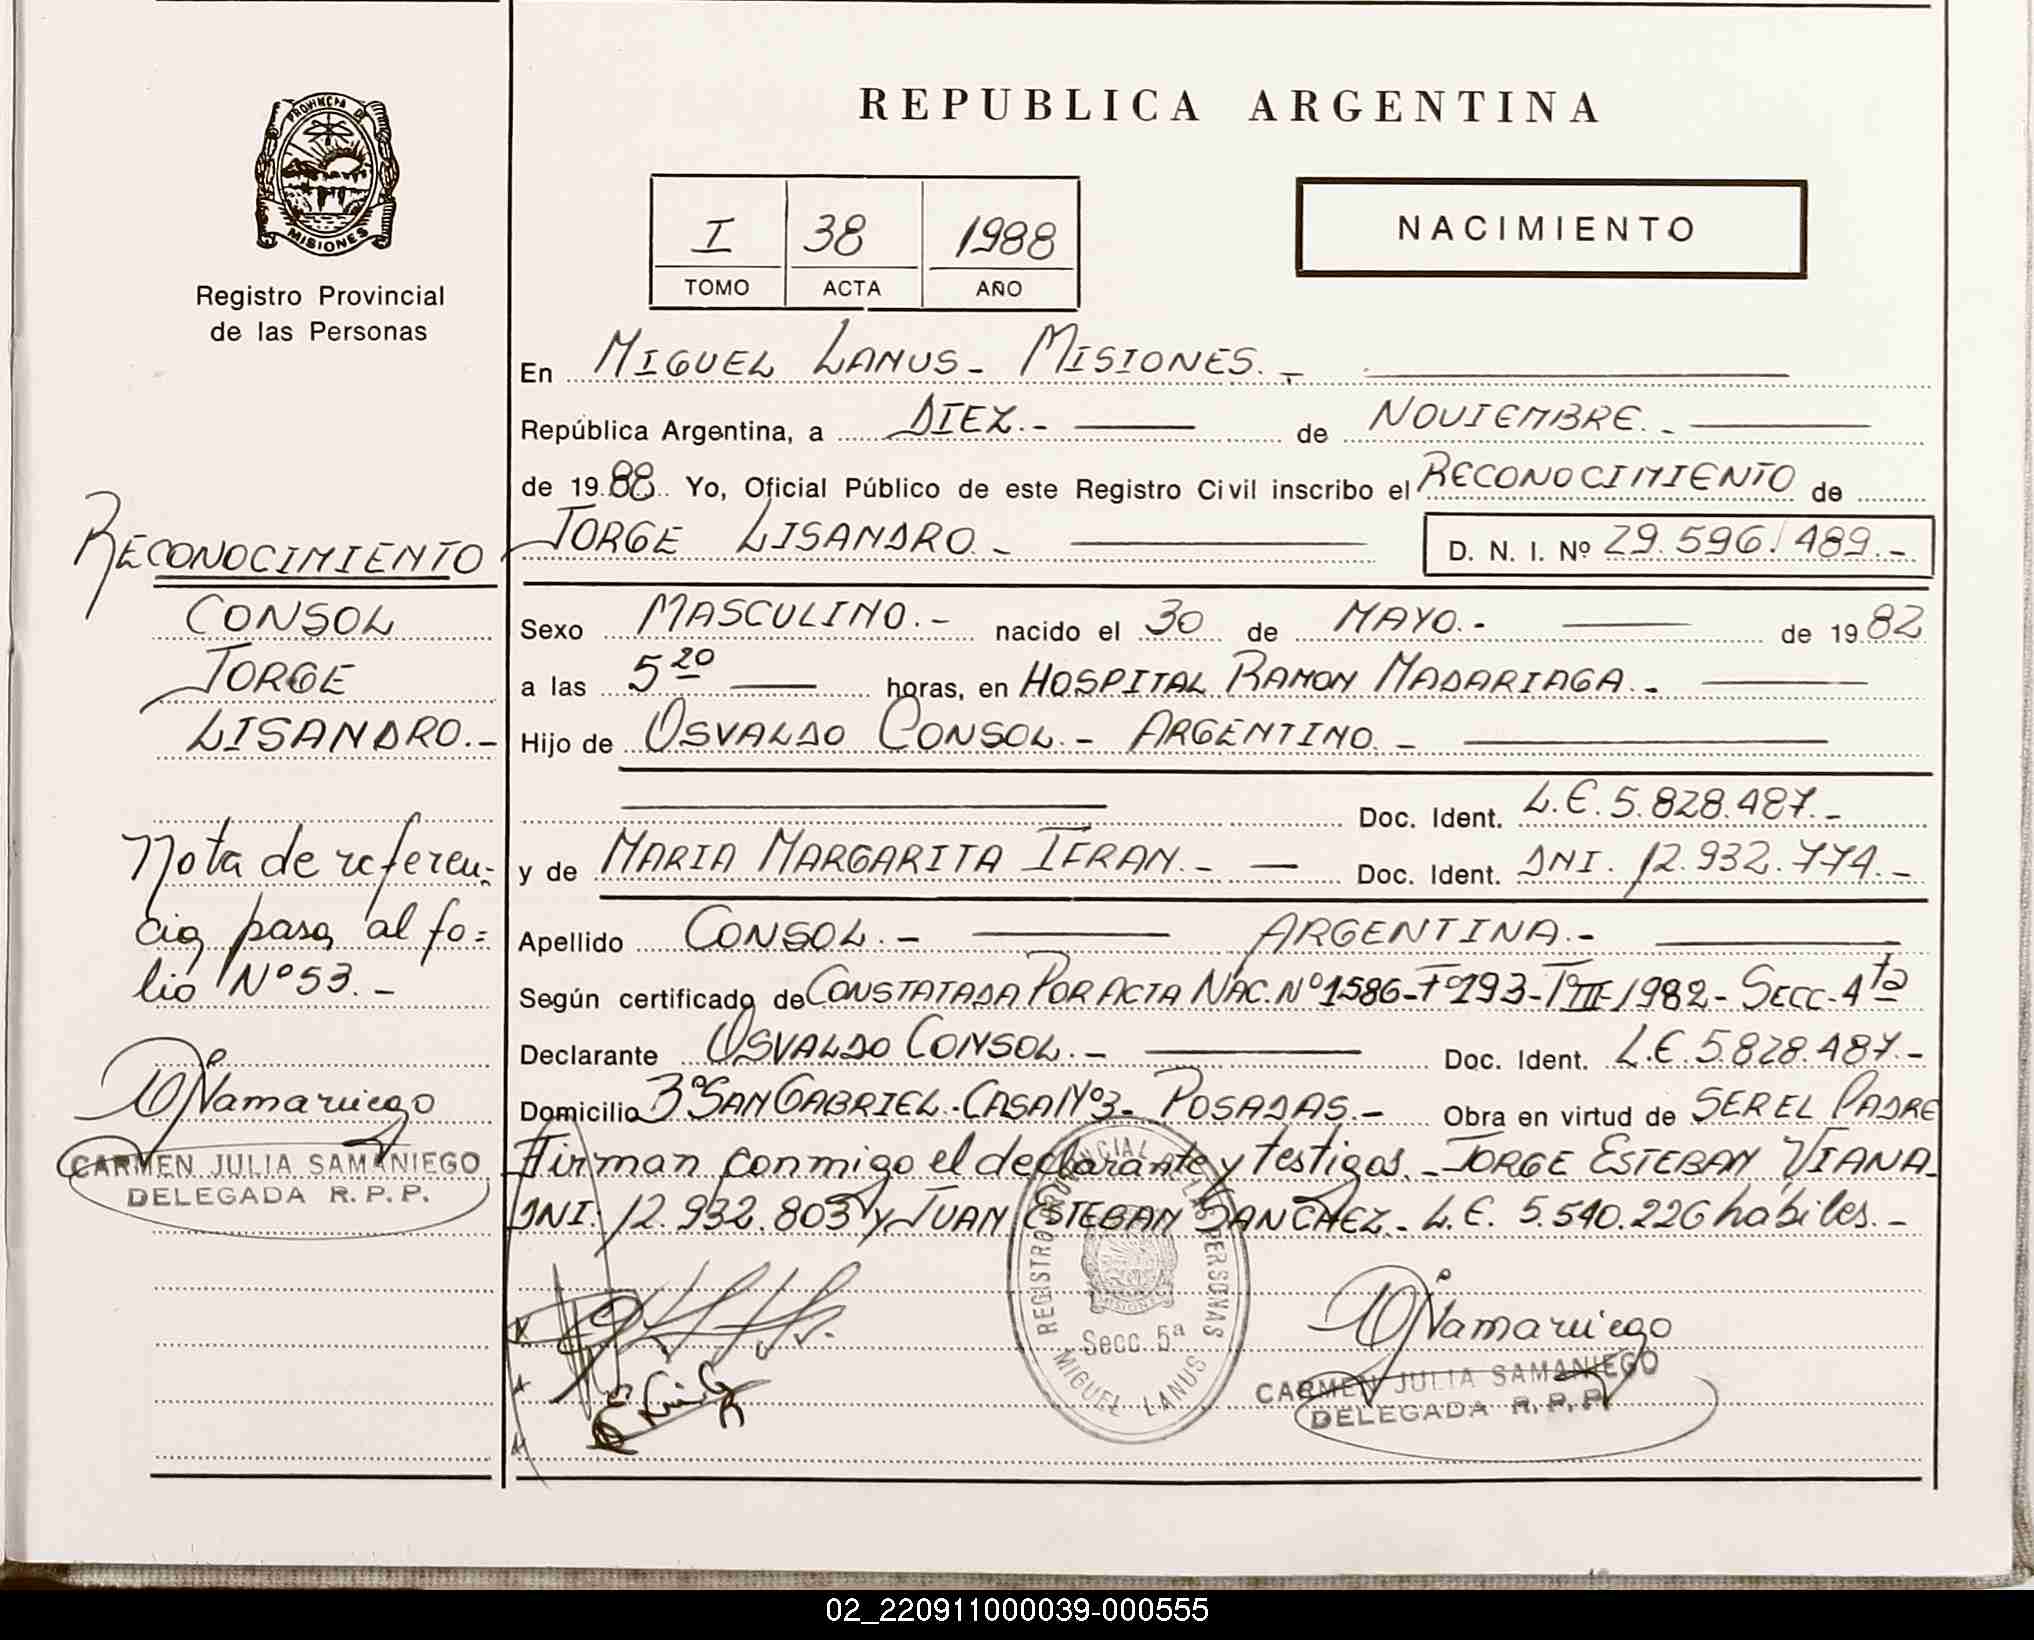 PROVINCIA DE
MISIONES
Registro Provincial
de las Personas
REPUBLICA ARGENTINA
I 38 1988
TOMO ACTA AÑO
NACIMIENTO
En MIGUEL LANUS - MISIONES. -
República Argentina, a DIEZ.- de NOVIEMBRE. -
de 19 88. Yo, Oficial Público de este Registro Civil inscribo el RECONOCIMIENTO de
JORGE LISANDRO. - D. N. I. Nº 29.596.489.-
Sexo MASCULINO.- nacido el 30 de MAYO.- de 19 82
a las 5 20 horas, en HOSPITAL RAMON MADARIAGA.-
Hijo de OSVALDO CONSOL - ARGENTINO. -
Doc. Ident. L.E. 5.828.487.-
y de MARIA MARGARITA IFRAN.- Doc. Ident. DNI. 12.932.774.-
Apellido CONSOL.- ARGENTINA.-
Según certificado de CONSTATADA POR ACTA NAC. Nº 1586-Fº193-TºIII-1982- SECC- 4ta
Declarante OSVALDO CONSOL.- Doc. Ident. L.E. 5.828.487.-
Domicilio Bº SAN GABRIEL - CASA Nº3- POSADAS.- Obra en virtud de SER EL PADRE
Firman conmigo el declarante y testigos.- JORGE ESTEBAN VIANA-
DNI. 12.932.803 y JUAN ESTEBAN SANCHEZ- L.E. 5.540.226 hábiles.-
REGISTRO PROVINCIAL DE LAS PERSONAS
MISIONES
Secc 5ª
MIGUEL LANUS
CARMEN JULIA SAMANIEGO
DELEGADA R. P. P.
RECONOCIMIENTO
CONSOL
JORGE
LISANDRO.-
Nota de referen-
cia pasa al fo=
lio Nº 53.-
CARMEN JULIA SAMANIEGO
DELEGADA R. P. P.
02_220911000039-000555